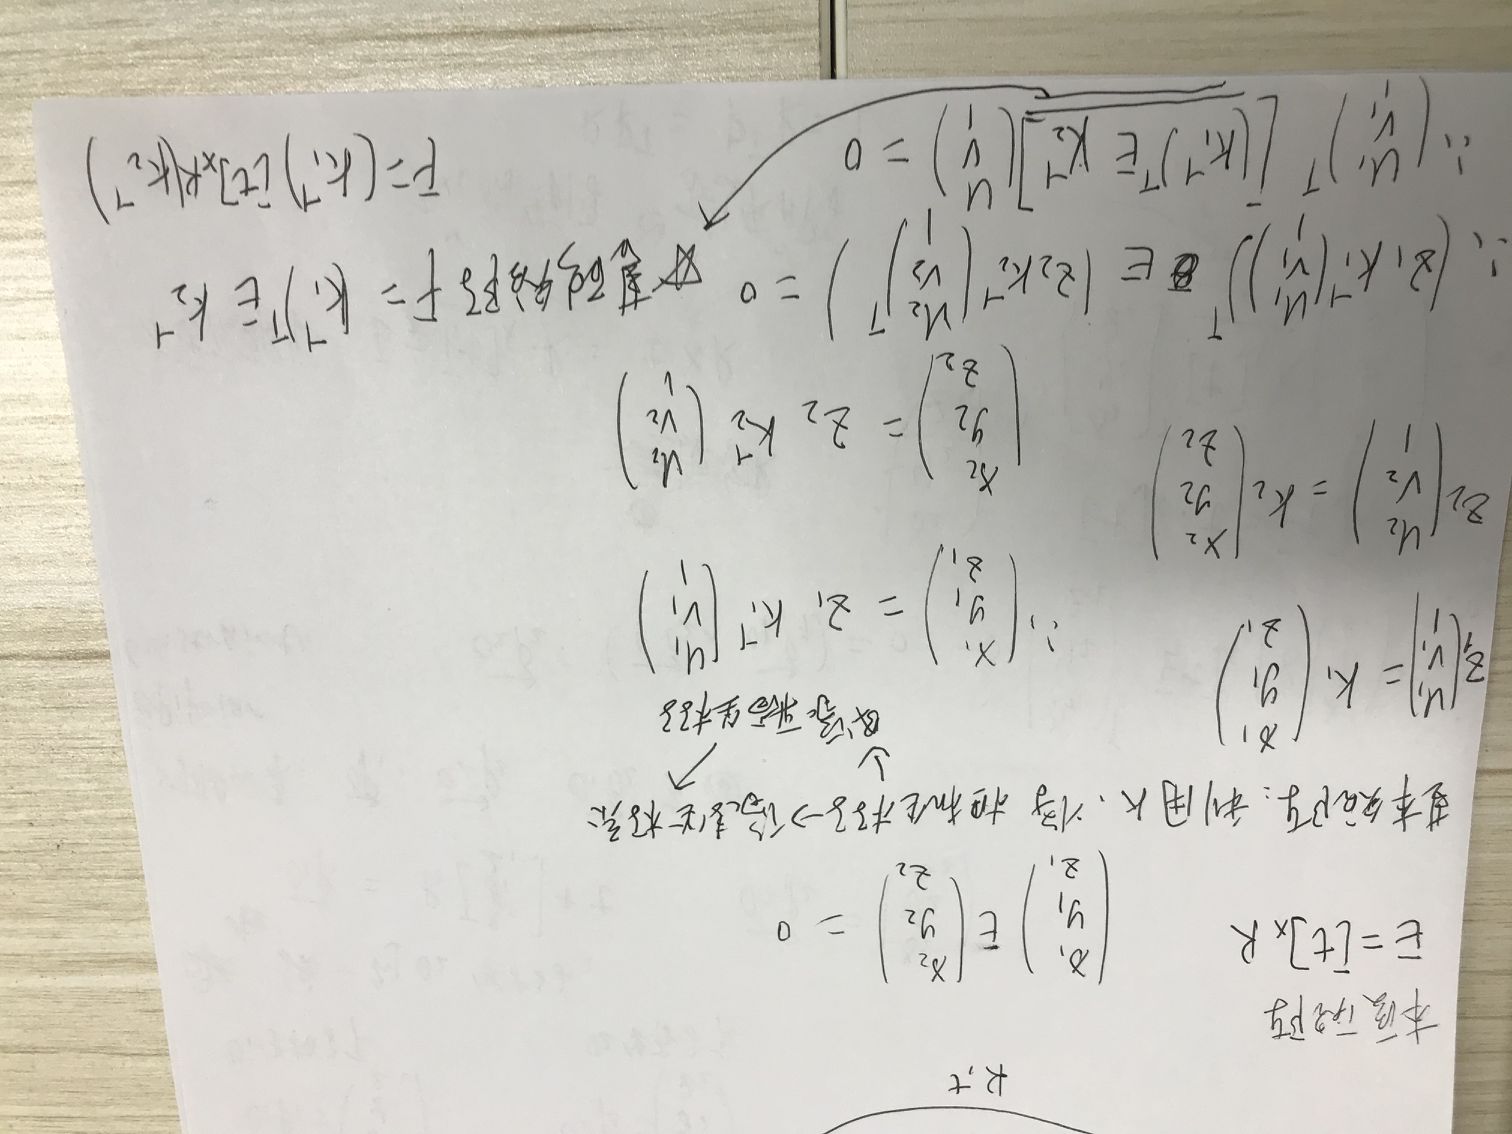 R,t
本质矩阵
E = [t]ₓ R (x₁ y₁ z₁) E (x₂ y₂ z₂) = 0
基本矩阵: 利用K、将 相机坐标系→像素坐标系
↓ ↗
成像平面坐标系
z₁(u₁ v₁ 1) = K₁ (x₁ y₁ z₁)
∴ (x₁ y₁ z₁) = z₁ K₁⁻¹ (u₁ v₁ 1)
z₂(u₂ v₂ 1) = K₂ (x₂ y₂ z₂)
(x₂ y₂ z₂) = z₂ K₂⁻¹ (u₂ v₂ 1)
∴ (z₁ K₁⁻¹(u₁ v₁ 1))ᵀ E (z₂ K₂⁻¹ (u₂ v₂ 1)ᵀ) = 0
☆基础矩阵 F = (K₁⁻¹)ᵀ E K₂⁻¹
∴ (u₁ v₁ 1)ᵀ [(K₁⁻¹)ᵀ E K₂⁻¹] (u v 1) = 0
F = (K₁⁻¹) [t]ₓ R (K₂⁻¹)